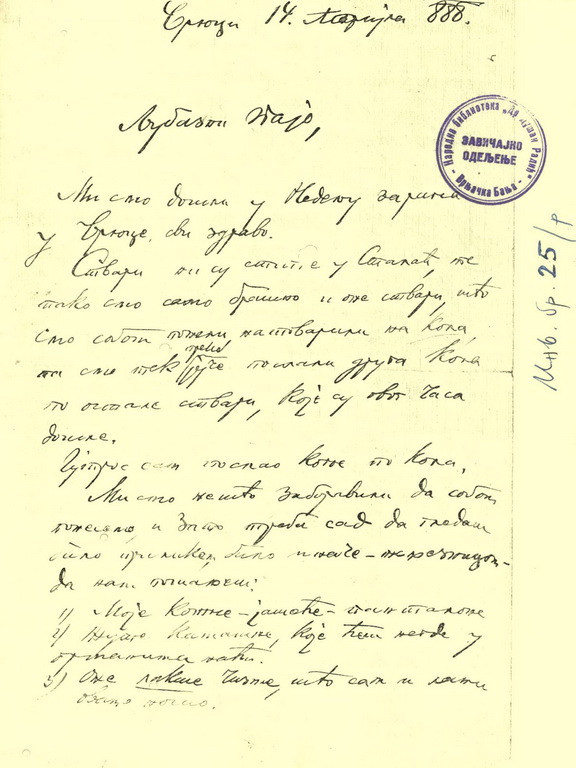 Врњци 14. Априла 888.
Љубазни Пајо,
Народна библиотека „Др Душан Радић“
ЗАВИЧАЈНО
ОДЕЉЕЊЕ
Врњачка Бања
Инв. бр. 25/р
Ми смо дошли у Недељу
у Врњце, сви здраво.
Ствари ни су стигле у Сталаћ, те
тако смо само и оне ствари, што
смо собом понели натоварили на кола,
па смо тек преко
јуче послали друга кола
по остале ствари, које су овог часа
дошле.
Јутрос сам послао по кола.
Ми смо нешто заборавили да собом
понесемо и зато треба сад да гледаш
било било иначе –
да нам пошаљеш:
1) Моје – јашаће – панталоне
2) које ћеш негде у
наћи.
3) Оне чизме, што сам и лети